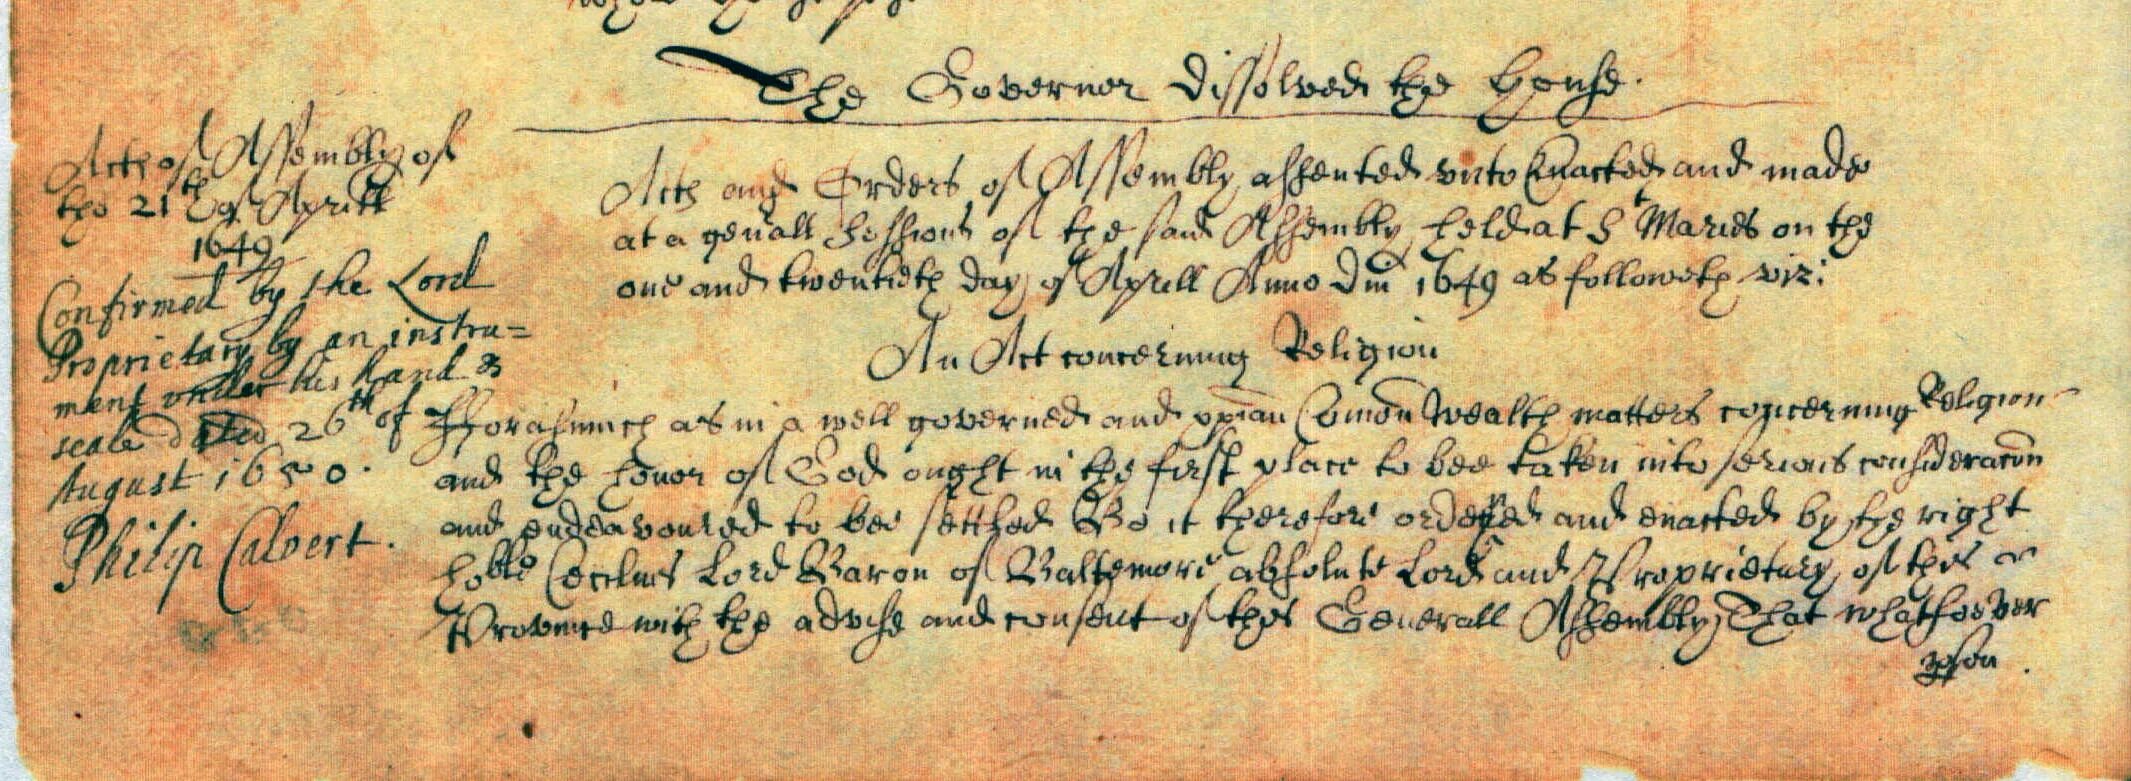 The Governor dissolved the howse.
Acts of Assembly of
the 21th of Aprill
1649
Confirmed by the Lord
Proprietary by an instru=
ment under his hand &
seale dated 26th of
August 1650.
Philip Calvert.
Acts and Orders of Assembly assented vnto Enacted and made
at a genall Sessions of the said Assembly held at St Maries on the
one and twentieth day of Aprill Anno Dm 1649 as followeth viz:
An Act concerning Religion
fforasmuch as in a well governed and xpian Comon Wealth matters concerning Religion
and the honor of God ought in the first place to bee taken into serious consideracon
and endeavoured to bee settled Be it therefore ordered and enacted by the right
hoble Cecilius Lord Baron of Baltemore absolute Lord and Proprietary of this
Province with the advise and consent of this Generall Assembly That whatsoever
pson